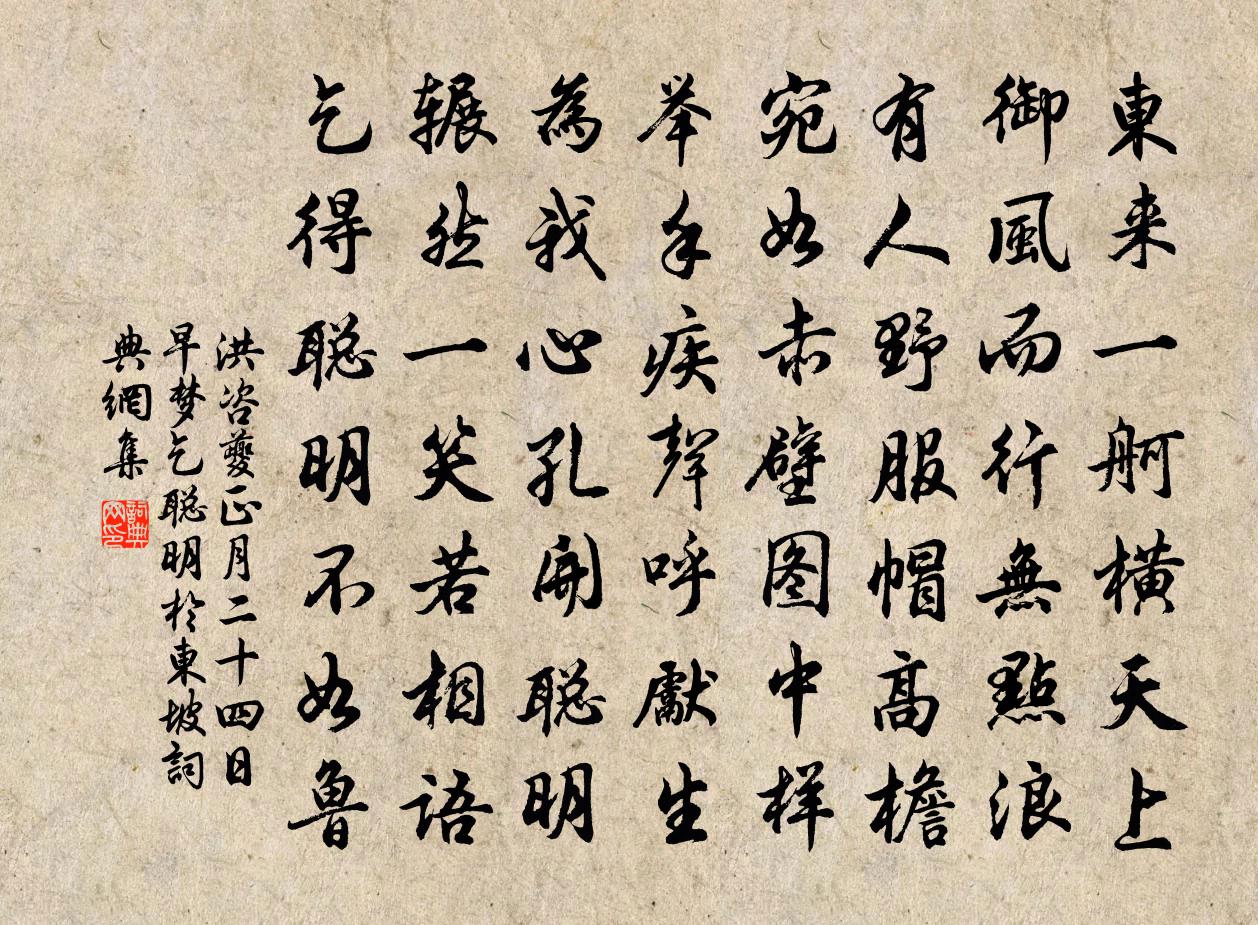 東来一舸横天上
御風而行無點浪
有人野服帽高檐
宛如赤壁图中样
举手疾聲呼獻生
為我心孔開聪明
辗然一笑若相語
乞得聪明不如鲁
洪咨夔正月二十四日
早梦乞聪明於東坡詞
典網集
詞典网印